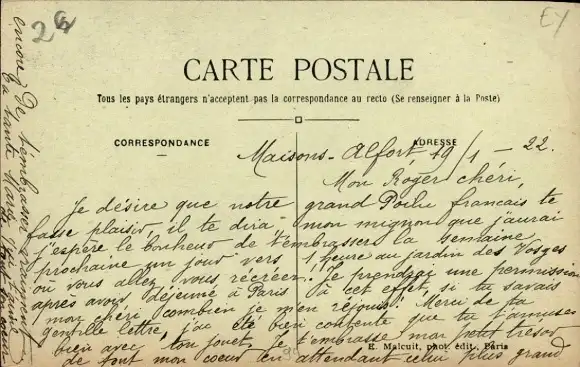 2a
EY
CARTE POSTALE
Tous les pays étrangers n'acceptent pas la correspondance au recto (Se renseigner à la Poste)
CORRESPONDANCE
ADRESSE
Maisons-Alfort, 19/1 - 22.
Mon Roger chéri,
Je désire que notre grand Poilu francais te
fasse plaisir, il te dira, mon mignon que j'aurai
j'espère le bonheur de t'embrasser la semaine
prochaine un jour vers 1 heure au jardin des Vosges
où vous allez vous récréer. Je prendrai une permission
après avoir déjeuné à Paris à cet effet, si tu savais
mon chéri combien je m'en réjouis! Merci de ta
gentille lettre, j'ai été bien contente que tu t'amuses
bien avec ton jouet, Je t'embrasse mon petit trésor
de tout mon coeur en attendant celui plus grand
encore De t'embrasser
Ta tante tout son coeur
E. Malcuit, phot. édit., Paris